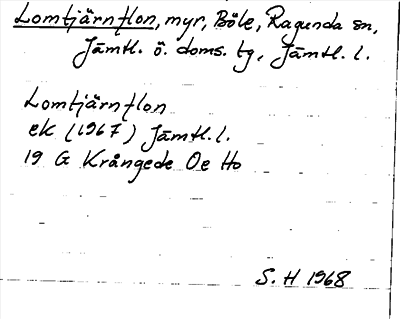 Lomtjärnflon, myr, Böle, Ragunda sn,
Jämtl. ö. doms. tg, Jämtl. l.
Lomtjärnflon
ek (1967) Jämtl. l.
19 G Krångede Oe Ho
S. H 1968